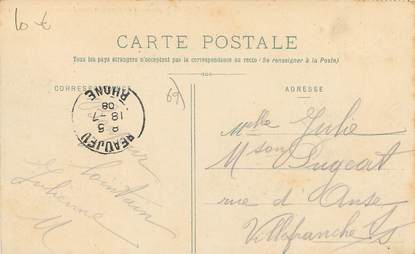 10 €
CARTE POSTALE
Tous les pays étrangers n'acceptent pas la correspondance au recto (Se renseigner à la Poste)
CORRESPONDANCE
ADRESSE
69)
BEAUJEU
8 5
18 - 7
08
RHONE
lointain
Julienne
M
Melle Julie
Mson Pugeat
rue d'Anse
Villefranche s/s